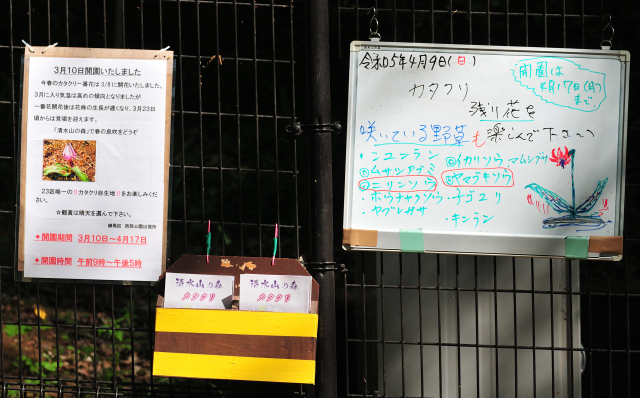 3月10日開園いたしました
今春のカタクリ一番花は3/8に開花いたしました。
3月に入り気温は高めの傾向となりましたが
一番花開花後は花株の生長が遅くなり、3月23日
頃からは見頃を迎えます。
「清水山の森」で春の息吹をどうぞ
23区唯一の!!カタクリ自生地!!をお楽しみくだ
さい。
☆観賞は晴天を選んで下さい。
＊開園期間 3月10日～4月17日
＊開園時間 午前9時～午後5時
清水山の森
カタクリ
清水山の森
カタクリ
令和05年4月9日(日)
開園は
4月17日(月)
まで
カタクリ
残り花を
咲いている野草も楽しんで下さい
・シュンラン
・イカリソウ
・ムサシアブミ
・ニリンソウ
・ヤマブキソウ
・ホウチャクソウ
・チゴユリ
・ヤブレガサ
・キンラン